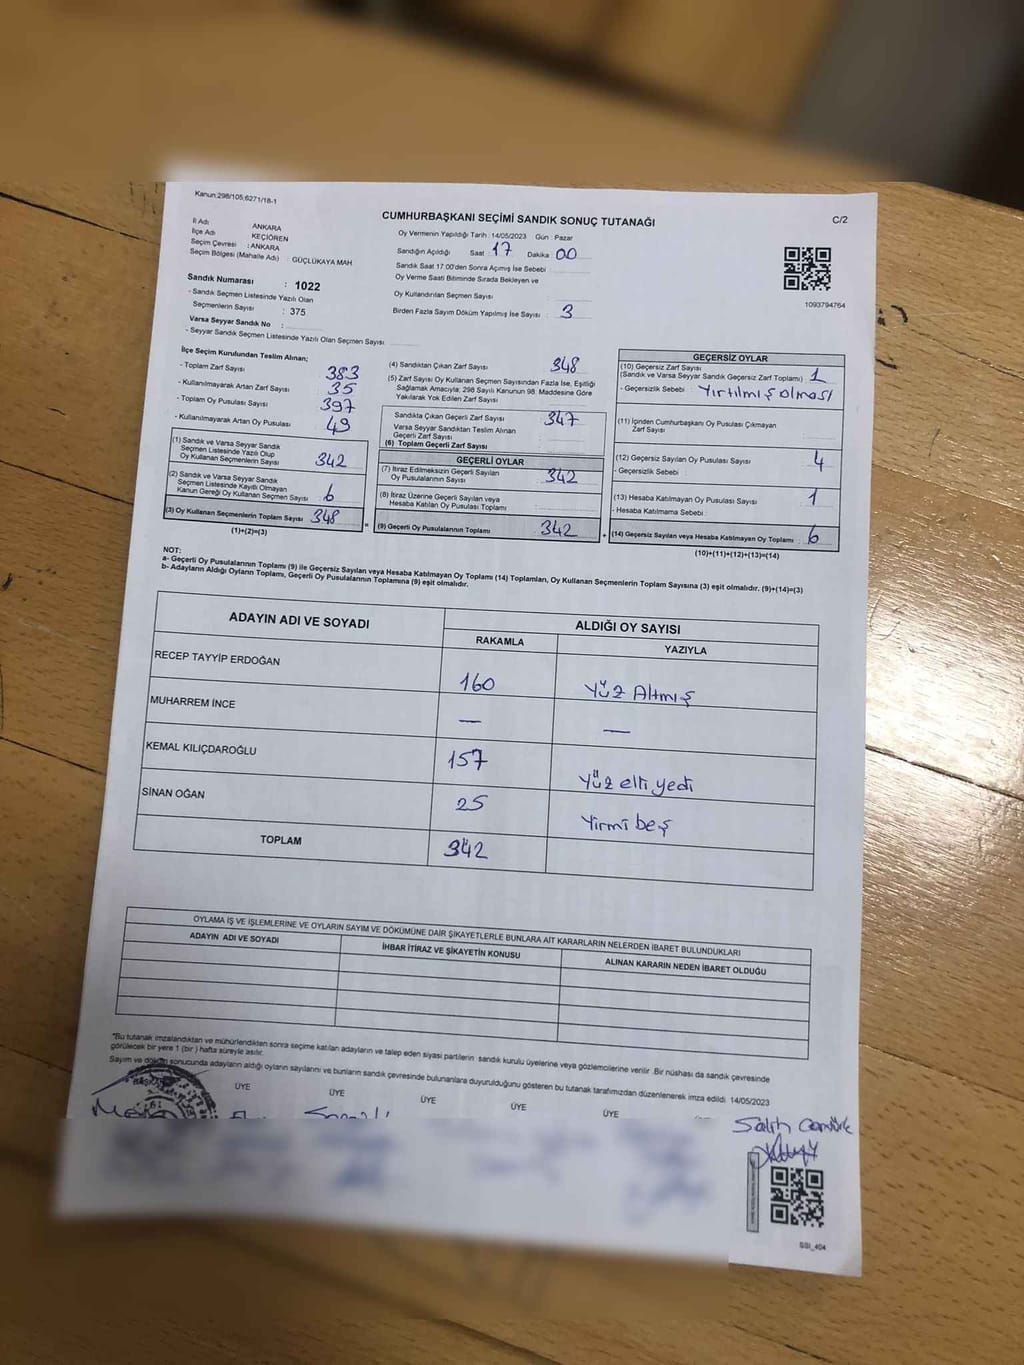 Kanun:298/105;6271/18-1
CUMHURBAŞKANI SEÇİMİ SANDIK SONUÇ TUTANAĞI
C/2
İl Adı : ANKARA
İlçe Adı : KEÇİÖREN
Seçim Çevresi : ANKARA
Seçim Bölgesi (Mahalle Adı) : GÜÇLÜKAYA MAH
Sandık Numarası : 1022
- Sandık Seçmen Listesinde Yazılı Olan
Seçmenlerin Sayısı : 375
Varsa Seyyar Sandık No :
- Seyyar Sandık Seçmen Listesinde Yazılı Olan Seçmen Sayısı
Oy Vermenin Yapıldığı Tarih : 14/05/2023 Gün : Pazar
Sandığın Açıldığı Saat 17 Dakika 00
Sandık Saat 17:00'den Sonra Açımış İse Sebebi
Oy Verme Saati Bitiminde Sırada Bekleyen ve
Oy Kullandırılan Seçmen Sayısı :
Birden Fazla Sayım Döküm Yapılmış İse Sayısı : 3
1093794764
İlçe Seçim Kurulundan Teslim Alınan;
- Toplam Zarf Sayısı 383
- Kullanılmayarak Artan Zarf Sayısı 35
- Toplam Oy Pusulası Sayısı 397
- Kullanılmayarak Artan Oy Pusulası 49
(1) Sandık ve Varsa Seyyar Sandık
Seçmen Listesinde Yazılı Olup
Oy Kullanan Seçmenlerin Sayısı 342
(2) Sandık ve Varsa Seyyar Sandık
Seçmen Listesinde Kayıtlı Olmayan
Kanun Gereği Oy Kullanan Seçmen Sayısı 6
(3) Oy Kullanan Seçmenlerin Toplam Sayısı 348
(1)+(2)=(3)
(4) Sandıktan Çıkan Zarf Sayısı 348
(5) Zarf Sayısı Oy Kullanan Seçmen Sayısından Fazla İse, Eşitliği
Sağlamak Amacıyla; 298 Sayılı Kanunun 98. Maddesine Göre
Yakılarak Yok Edilen Zarf Sayısı
Sandıkta Çıkan Geçerli Zarf Sayısı 347
Varsa Seyyar Sandıktan Teslim Alınan
Geçerli Zarf Sayısı
(6) Toplam Geçerli Zarf Sayısı
GEÇERLİ OYLAR
(7) İtiraz Edilmeksizin Geçerli Sayılan
Oy Pusulalarının Sayısı : 342
(8) İtiraz Üzerine Geçerli Sayılan veya
Hesaba Katılan Oy Pusulası Toplamı :
(9) Geçerli Oy Pusulalarının Toplamı 342
GEÇERSİZ OYLAR
(10) Geçersiz Zarf Sayısı
(Sandık ve Varsa Seyyar Sandık Geçersiz Zarf Toplamı) 1
- Geçersizlik Sebebi : Yırtılmış olması
(11) İçinden Cumhurbaşkanı Oy Pusulası Çıkmayan
Zarf Sayısı
(12) Geçersiz Sayılan Oy Pusulası Sayısı 4
- Geçersizlik Sebebi
(13) Hesaba Katılmayan Oy Pusulası Sayısı 1
- Hesaba Katılmama Sebebi :
(14) Geçersiz Sayılan veya Hesaba Katılmayan Oy Toplamı : 6
(10)+(11)+(12)+(13)=(14)
NOT:
a- Geçerli Oy Pusulalarının Toplamı (9) ile Geçersiz Sayılan veya Hesaba Katılmayan Oy Toplamı (14) Toplamları, Oy Kullanan Seçmenlerin Toplam Sayısına (3) eşit olmalıdır. (9)+(14)=(3)
b- Adayların Aldığı Oyların Toplamı, Geçerli Oy Pusulalarının Toplamına (9) eşit olmalıdır.
ADAYIN ADI VE SOYADI ALDIĞI OY SAYISI
RAKAMLA YAZIYLA
RECEP TAYYİP ERDOĞAN 160 Yüz Altmış
MUHARREM İNCE — —
KEMAL KILIÇDAROĞLU 157 Yüz elli yedi
SİNAN OĞAN 25 Yirmi beş
TOPLAM 342
OYLAMA İŞ VE İŞLEMLERİNE VE OYLARIN SAYIM VE DÖKÜMÜNE DAİR ŞİKAYETLERLE BUNLARA AİT KARARLARIN NELERDEN İBARET BULUNDUKLARI
ADAYIN ADI VE SOYADI İHBAR İTİRAZ VE ŞİKAYETİN KONUSU ALINAN KARARIN NEDEN İBARET OLDUĞU
*Bu tutanak imzalandıktan ve mühürlendikten sonra seçime katılan adayların ve talep eden siyasi partilerin sandık kurulu üyelerine veya gözlemcilerine verilir. Bir nüshası da sandık çevresinde
görülecek bir yere 1 (bir) hafta süreyle asılır.
Sayım ve döküm sonucunda adayların aldığı oyların sayılarını ve bunların sandık çevresinde bulunanlara duyurulduğunu gösteren bu tutanak tarafımızdan düzenlenerek imza edildi. 14/05/2023
BAŞKAN ÜYE ÜYE ÜYE ÜYE ÜYE
Salih
SSI_404